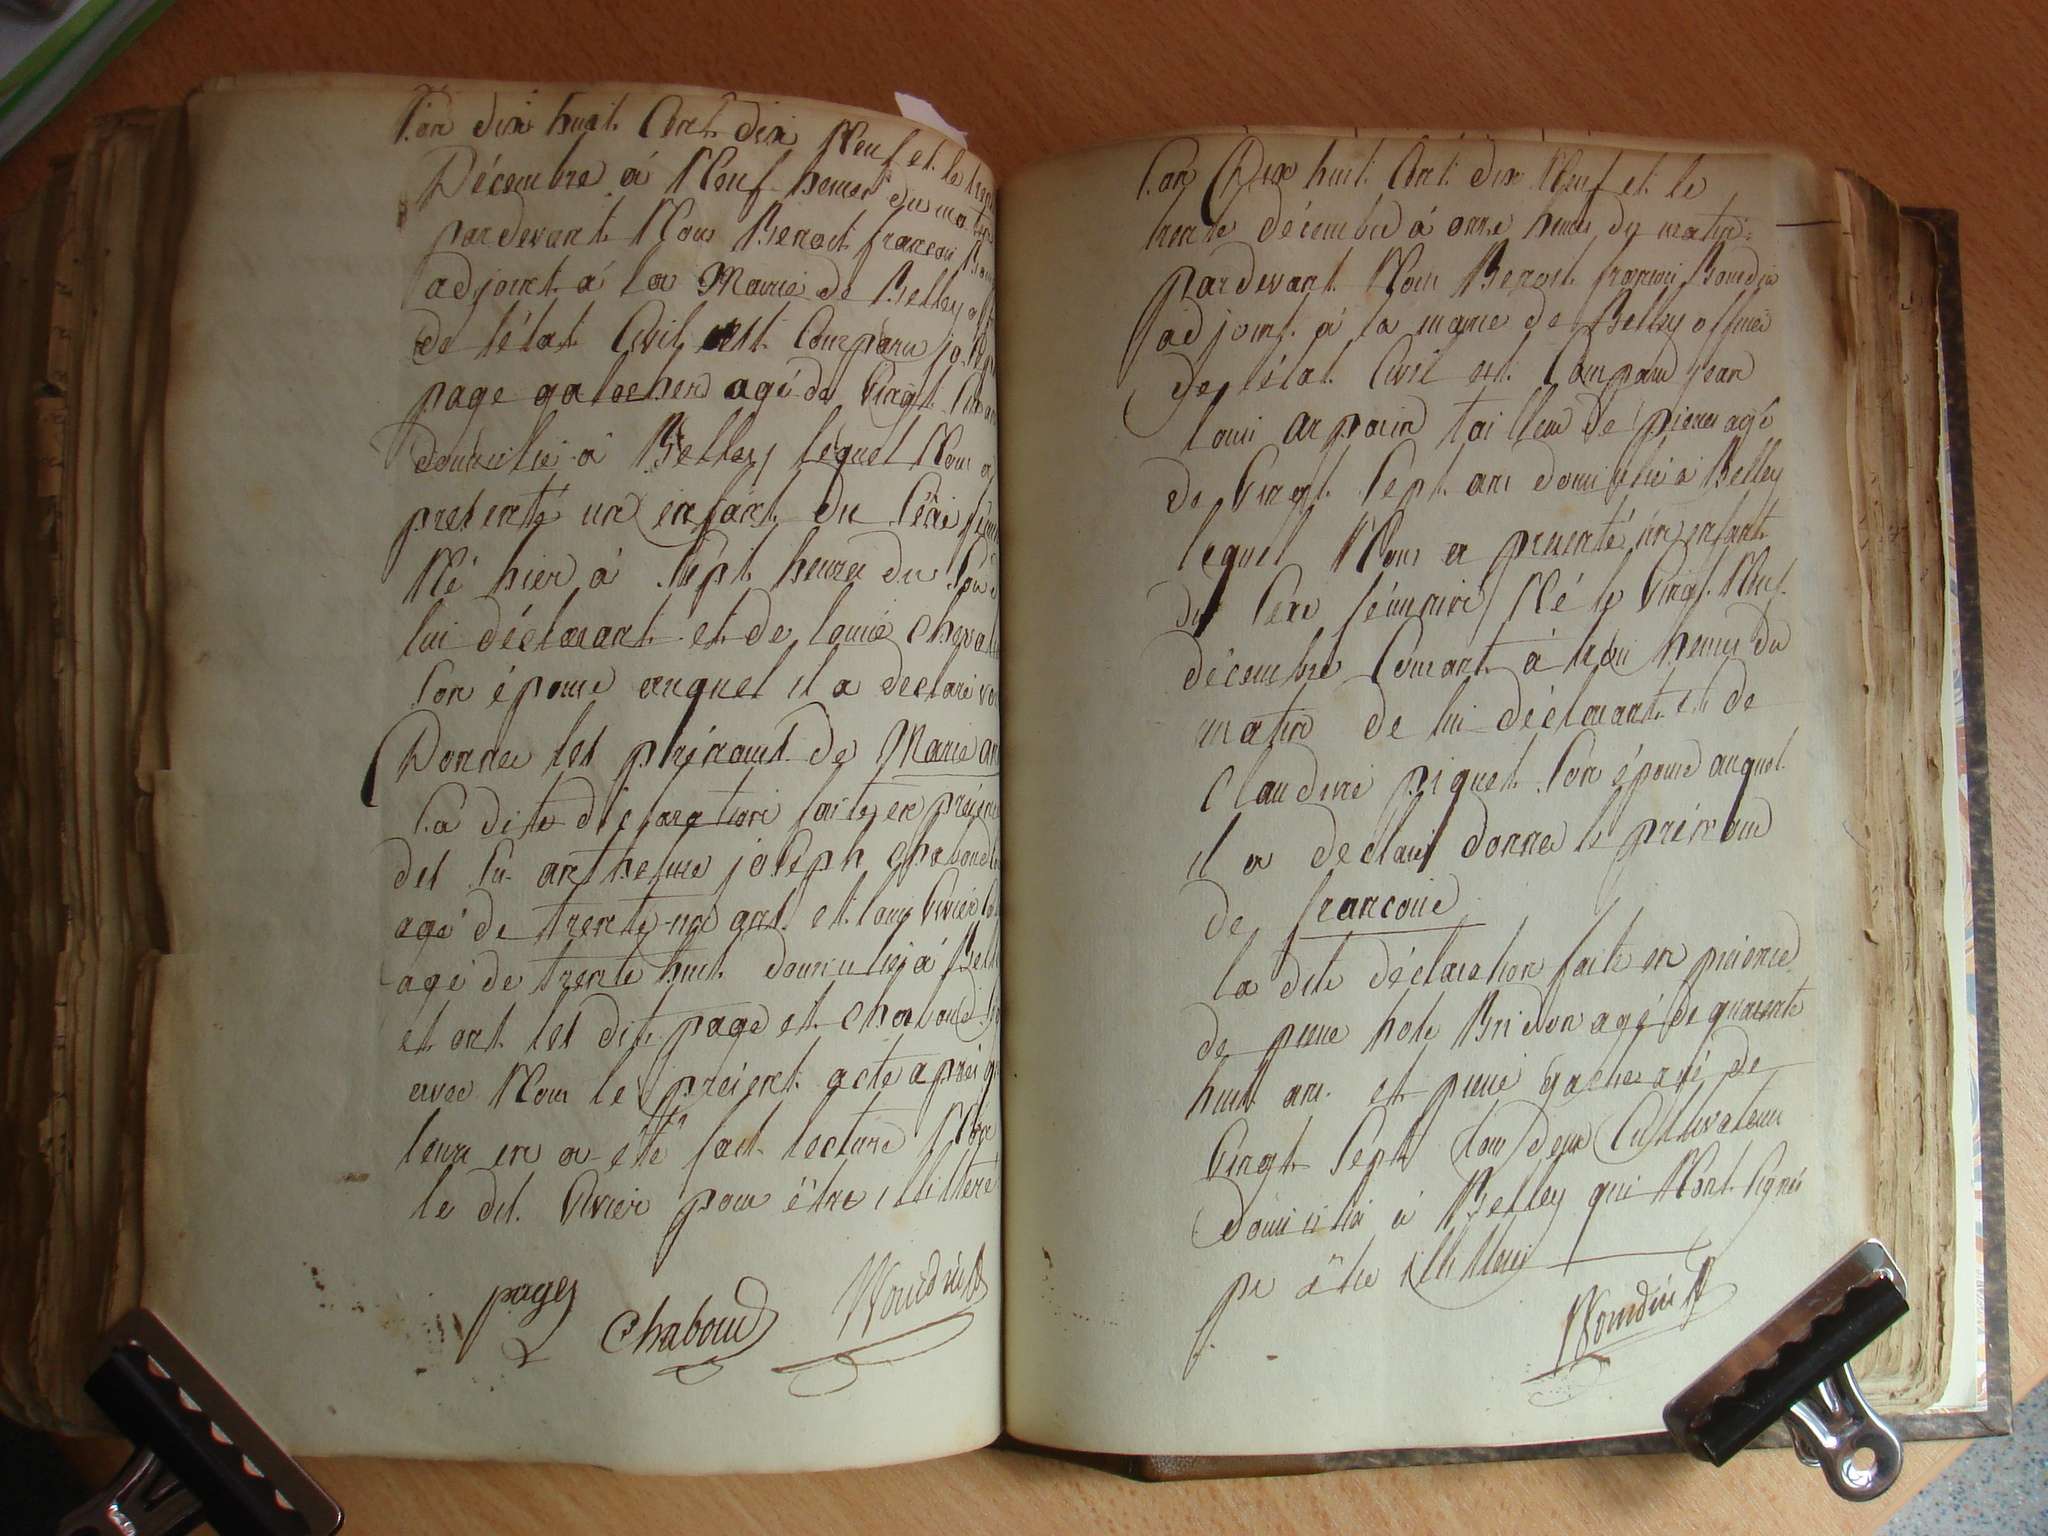 L'an dix huit Cent dix Neuf et le
Décembre à Neuf heures du matin
pardevant Nous Benoit françois
adjoint à la Mairie de Belley
de l'état Civil est Comparu joseph
page galocher agé de Vingt
domicilié à Belley lequel Nous a
presenté un enfant du Sexe
Né hier à Sept heures du Soir
lui déclarant et de Louise
Son épouse auquel il a declaré
Donner les prénoms de Marie
La dite déclaration faite en présence
des Srs anthelme joseph Chaboud
agé de trente ans et Louis Vivier
agé de trente huit domicilié à
et ont les dits page et Chaboud
avec Nous le présent acte après
leur en a été fait lecture Non
le dit Vivier pour être illiteré
page
Chaboud
L'an Dix huit Cent dix Neuf et le
trente décembre à onze heures du matin
pardevant Nous Benoit françois
adjoint à la mairie de Belley officier
de l'état Civil est Comparu jean
louis arpain tailleur de pierres agé
de Vingt Sept ans domicilié à Belley
lequel Nous a presenté un enfant
du Sexe féminin Né le Vingt Neuf
décembre Courant à trois heures du
matin de lui déclarant et de
Claudine piquet Son épouse auquel
il a déclaré donner le prénom
de françoise
la dite déclaration faite en présence
de pierre hote Bridon agé de quarante
huit ans et pierre gache agé de
Vingt Sept tous deux Cultivateurs
domiciliés à Belley qui N'ont Signés
pr être illitérés